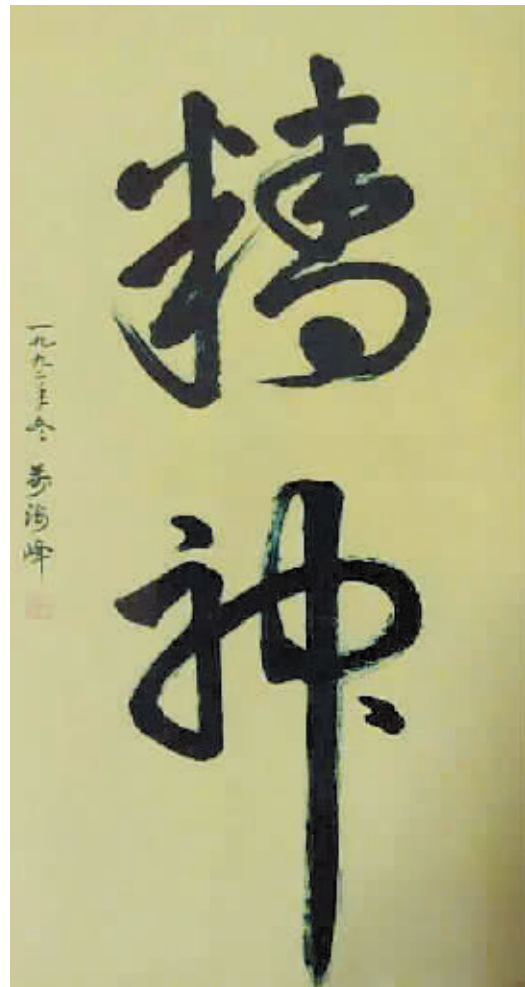 精神
一九九二年冬 万海峰